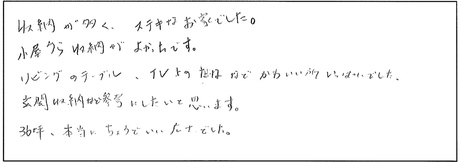 収納が多く、ステキなお家でした。
小屋うら収納がよかったです。
リビングのテーブル、TV上の棚などかわいい所いっぱいでした。
玄関収納など参考にしたいと思います。
36坪、本当にちょうどいい広さでした。